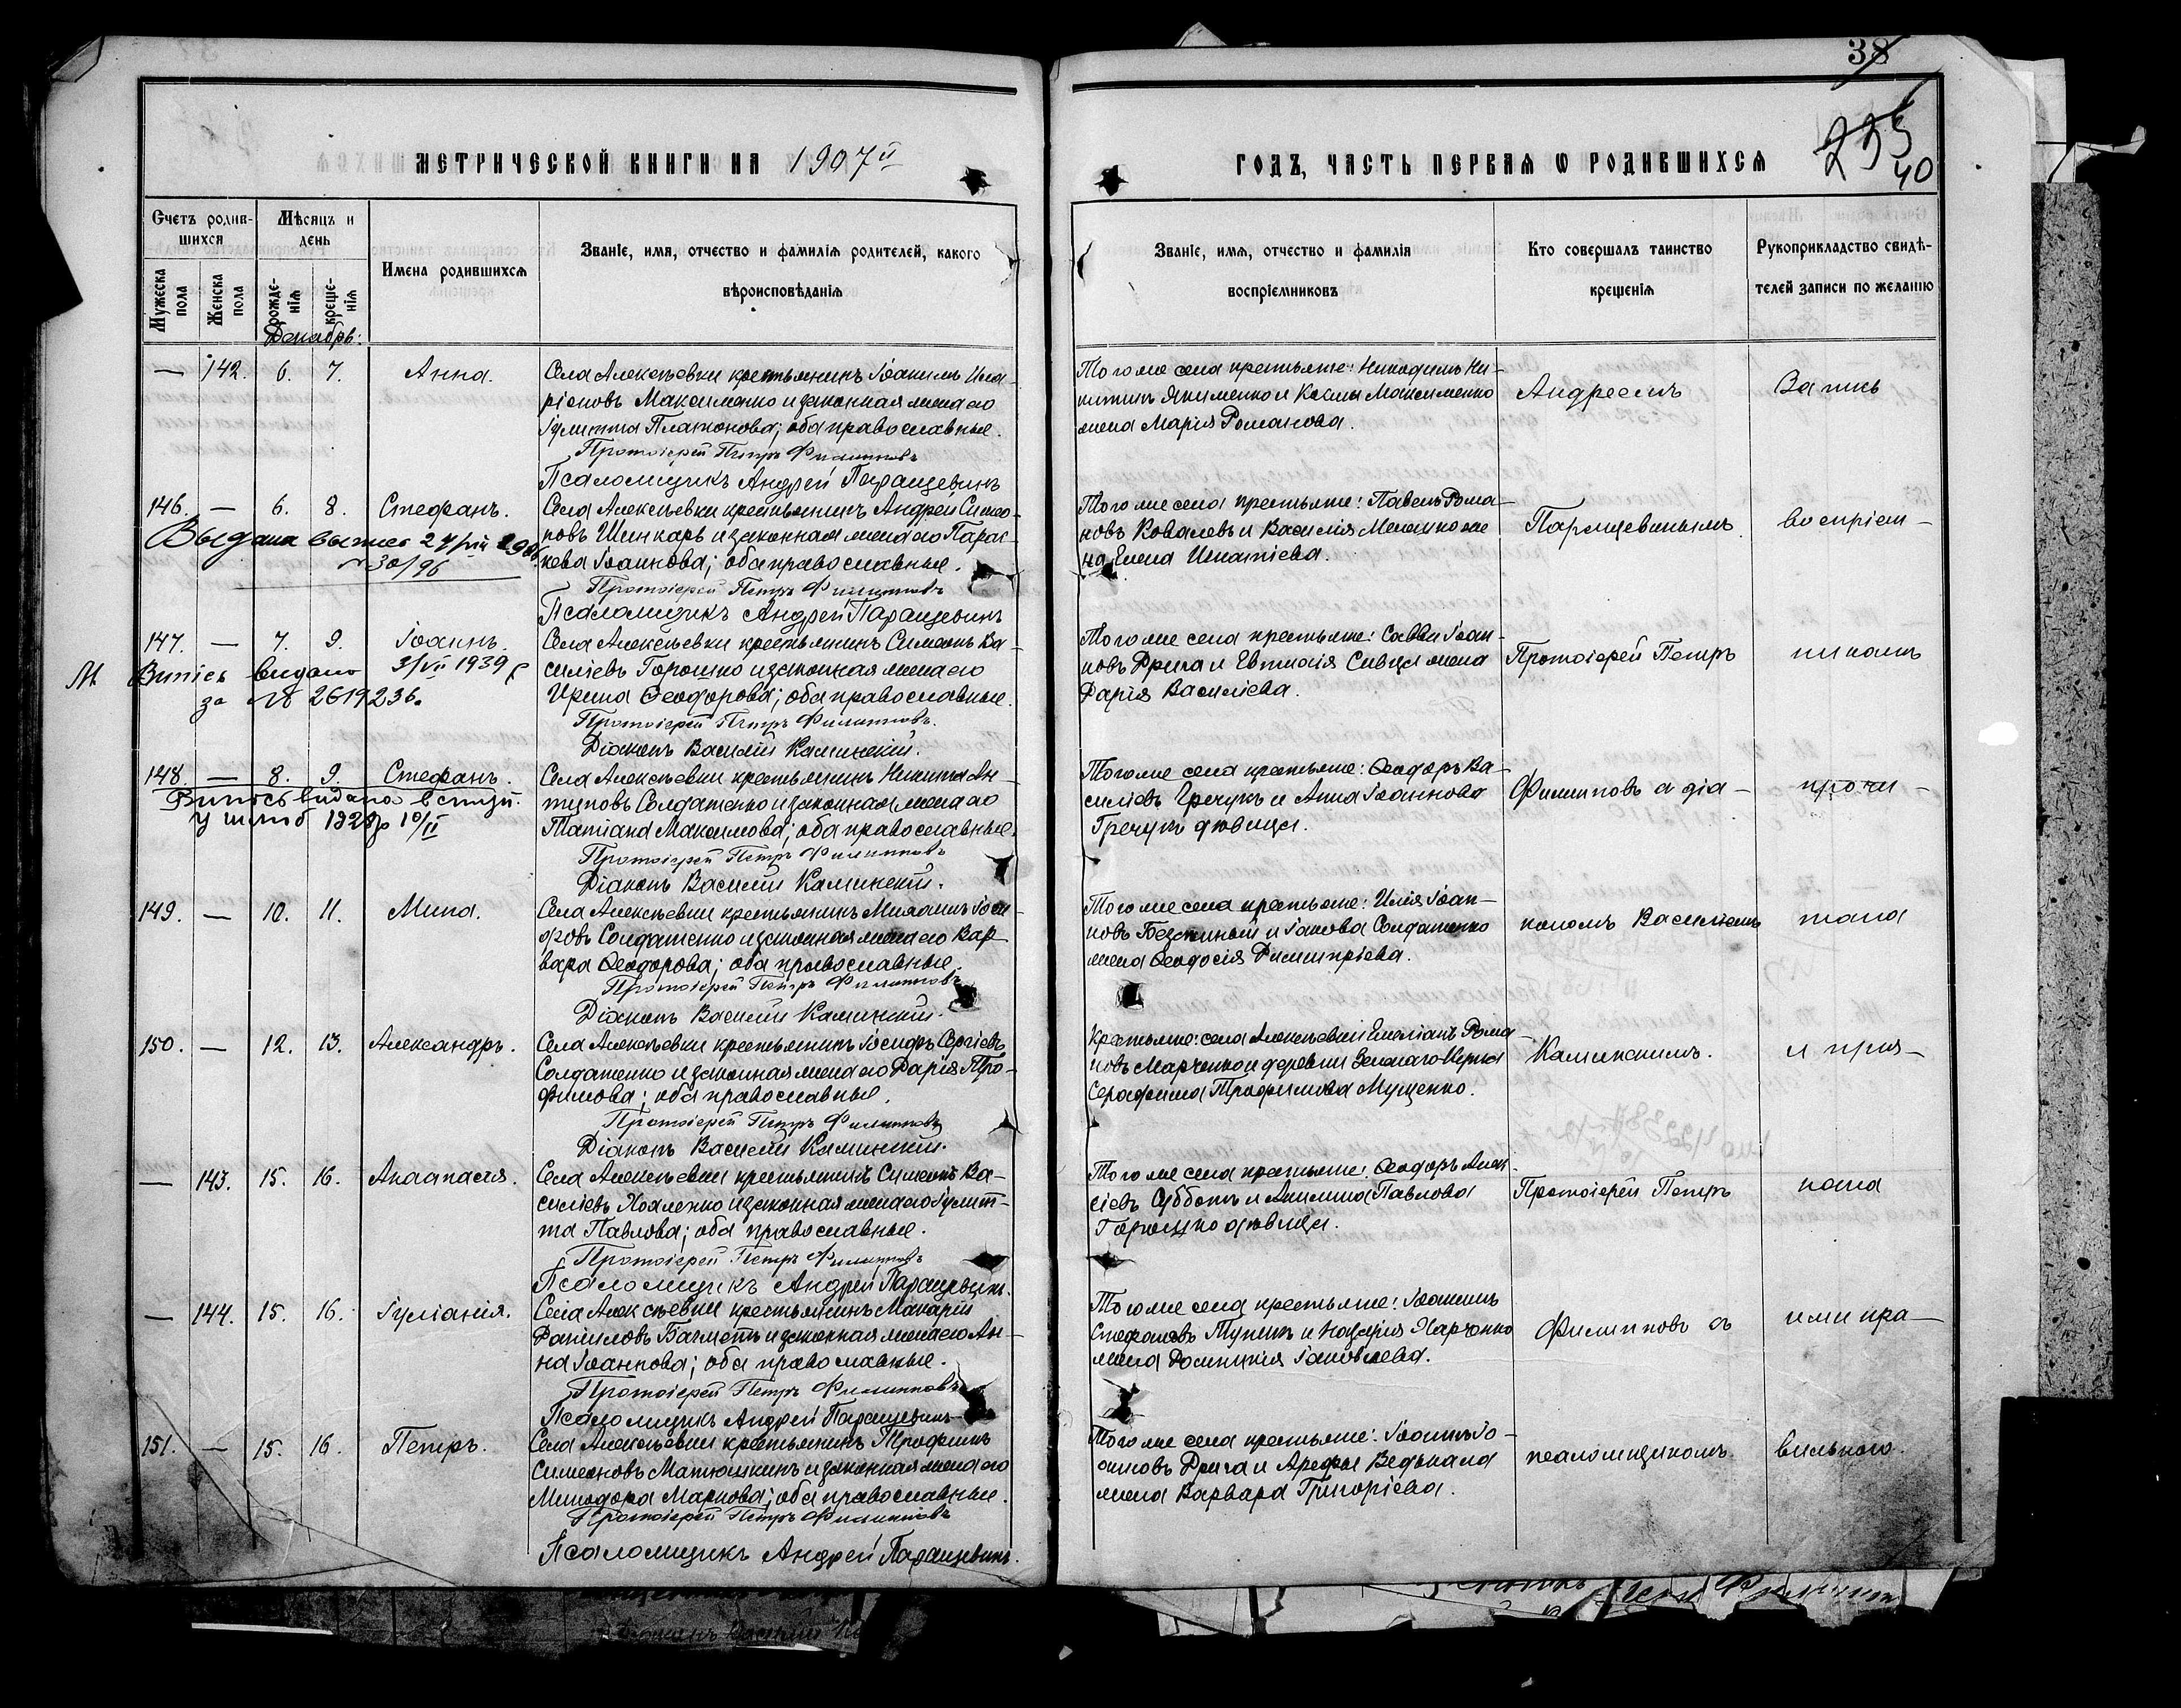 38
235
40
МЕТРИЧЕСКОЙ КНИГИ НА 1907й
ГОДЪ, ЧАСТЬ ПЕРВАЯ Ѡ РОДИВШИХСЯ
Счетъ родив-
шихся
Мѣсяцъ и
день
Имена родившихся
Званіе, имя, отчество и фамилія родителей, какого
вѣроисповѣданія
Званіе, имя, отчество и фамилія
воспріемниковъ
Кто совершалъ таинство
крещенія
Рукоприкладство свидѣ-
телей записи по желанію
Мужеска
пола
Женска
пола
рожде-
нія
креще-
нія
Декабрь:
— 142. 6. 7. Анна.
Села Алексѣевки крестьянинъ Іоакимъ Ила-
ріоновъ Максименко и законная жена его
Іулитта Платонова; оба православные.
Протоіерей Петръ Филипповъ
Псаломщикъ Андрей Паращевинъ
Того же села крестьяне: Никодимъ Ни-
китинъ Якименко и Космы Максименко
жена Марія Романова.
Андреемъ
Запись
146. — 6. 8. Стефанъ.
Выдана выпись
№ 30/96
Села Алексѣевки крестьянинъ Андрей Симео-
новъ Шинкарь и законная жена его Парас-
кева Іоаннова; оба православные.
Протоіерей Петръ Филипповъ
Псаломщикъ Андрей Паращевинъ
Того же села крестьяне: Павелъ Рома-
новъ Ковалевъ и Василія Мелешко же
на Елена Игнатіева.
Паращевинымъ.
воспріем-
147. — 7. 9. Іоаннъ.
Випісь видано 3/VII 1939 р
за № 2619236.
Села Алексѣевки крестьянинъ Симеонъ Ва-
силіевъ Горошко и законная жена его
Ирина Ѳеодорова; оба православные.
Протоіерей Петръ Филипповъ.
Діаконъ Василій Каминскій.
Того же села крестьяне: Савва Іоан-
новъ Дрига и Евтихія Сивца жена
Дарія Василіева.
Протоіерей Петръ
никомъ
148. — 8. 9. Стефанъ.
Випись видана
1928р 10/II
Села Алексѣевки крестьянинъ Никита Ан-
туповъ Солдатенко и законная жена его
Татіана Максимова; оба православные.
Протоіерей Петръ Филипповъ
Діаконъ Василій Каминскій.
Того же села крестьяне: Ѳеодоръ Ва-
силіевъ Гречукъ и Анна Іоаннова
Гречукъ дѣвица.
Филипповъ съ діа-
прочи-
149. — 10. 11. Мина.
Села Алексѣевки крестьянинъ Михаилъ Іоси-
фовъ Солдатенко и законная жена его Вар-
вара Ѳеодорова; оба православные.
Протоіерей Петръ Филипповъ
Діаконъ Василій Каминскій.
Того же села крестьяне: Илія Іоан-
новъ и Іакова Солдатенко
жена Ѳеодосія Димитріева.
кономъ Василіемъ
тана
150. — 12. 13. Александръ.
Села Алексѣевки крестьянинъ Исидоръ Сергіевъ
Солдатенко и законная жена его Дарія Тро-
фимова; оба православные.
Протоіерей Петръ Филипповъ
Діаконъ Василій Каминскій.
Крестьяне: села Алексѣевки Емеліанъ Рома
новъ Марченко и деревни
Серафима Трофимова Мущенко.
Каминскимъ.
и приз-
— 143. 15. 16. Анастасія.
Села Алексѣевки крестьянинъ Симеонъ Ва-
силіевъ Хояленко и законная жена его Іулит-
та Павлова; оба православные.
Протоіерей Петръ Филипповъ
Псаломщикъ Андрей Паращевинъ.
Того же села крестьяне: Ѳеодоръ Алек-
сіевъ Субботъ и Акилина Павлова
Горошко дѣвица.
Протоіерей Петръ
нана
— 144. 15. 16. Іуліанія.
Села Алексѣевки крестьянинъ Макарій
Даніиловъ Багметъ и законная жена его Ан-
на Іоаннова; оба православные.
Протоіерей Петръ Филипповъ
Псаломщикъ Андрей Паращевинъ
Того же села крестьяне: Іоакимъ
Стефановъ Тупикъ и Назарія Харченко
жена Домникія Іаковлева.
Филипповъ съ
ими пра-
151. — 15. 16. Петръ.
Села Алексѣевки крестьянинъ Трофимъ
Симеоновъ Матюшкинъ и законная жена его
Минодора Маркова; оба православные.
Протоіерей Петръ Филипповъ
Псаломщикъ Андрей Паращевинъ.
Того же села крестьяне: Іоаннъ Іо-
сифовъ Дрига и Арефы Ведькала
жена Варвара Григоріева.
псаломщикомъ
вильною.